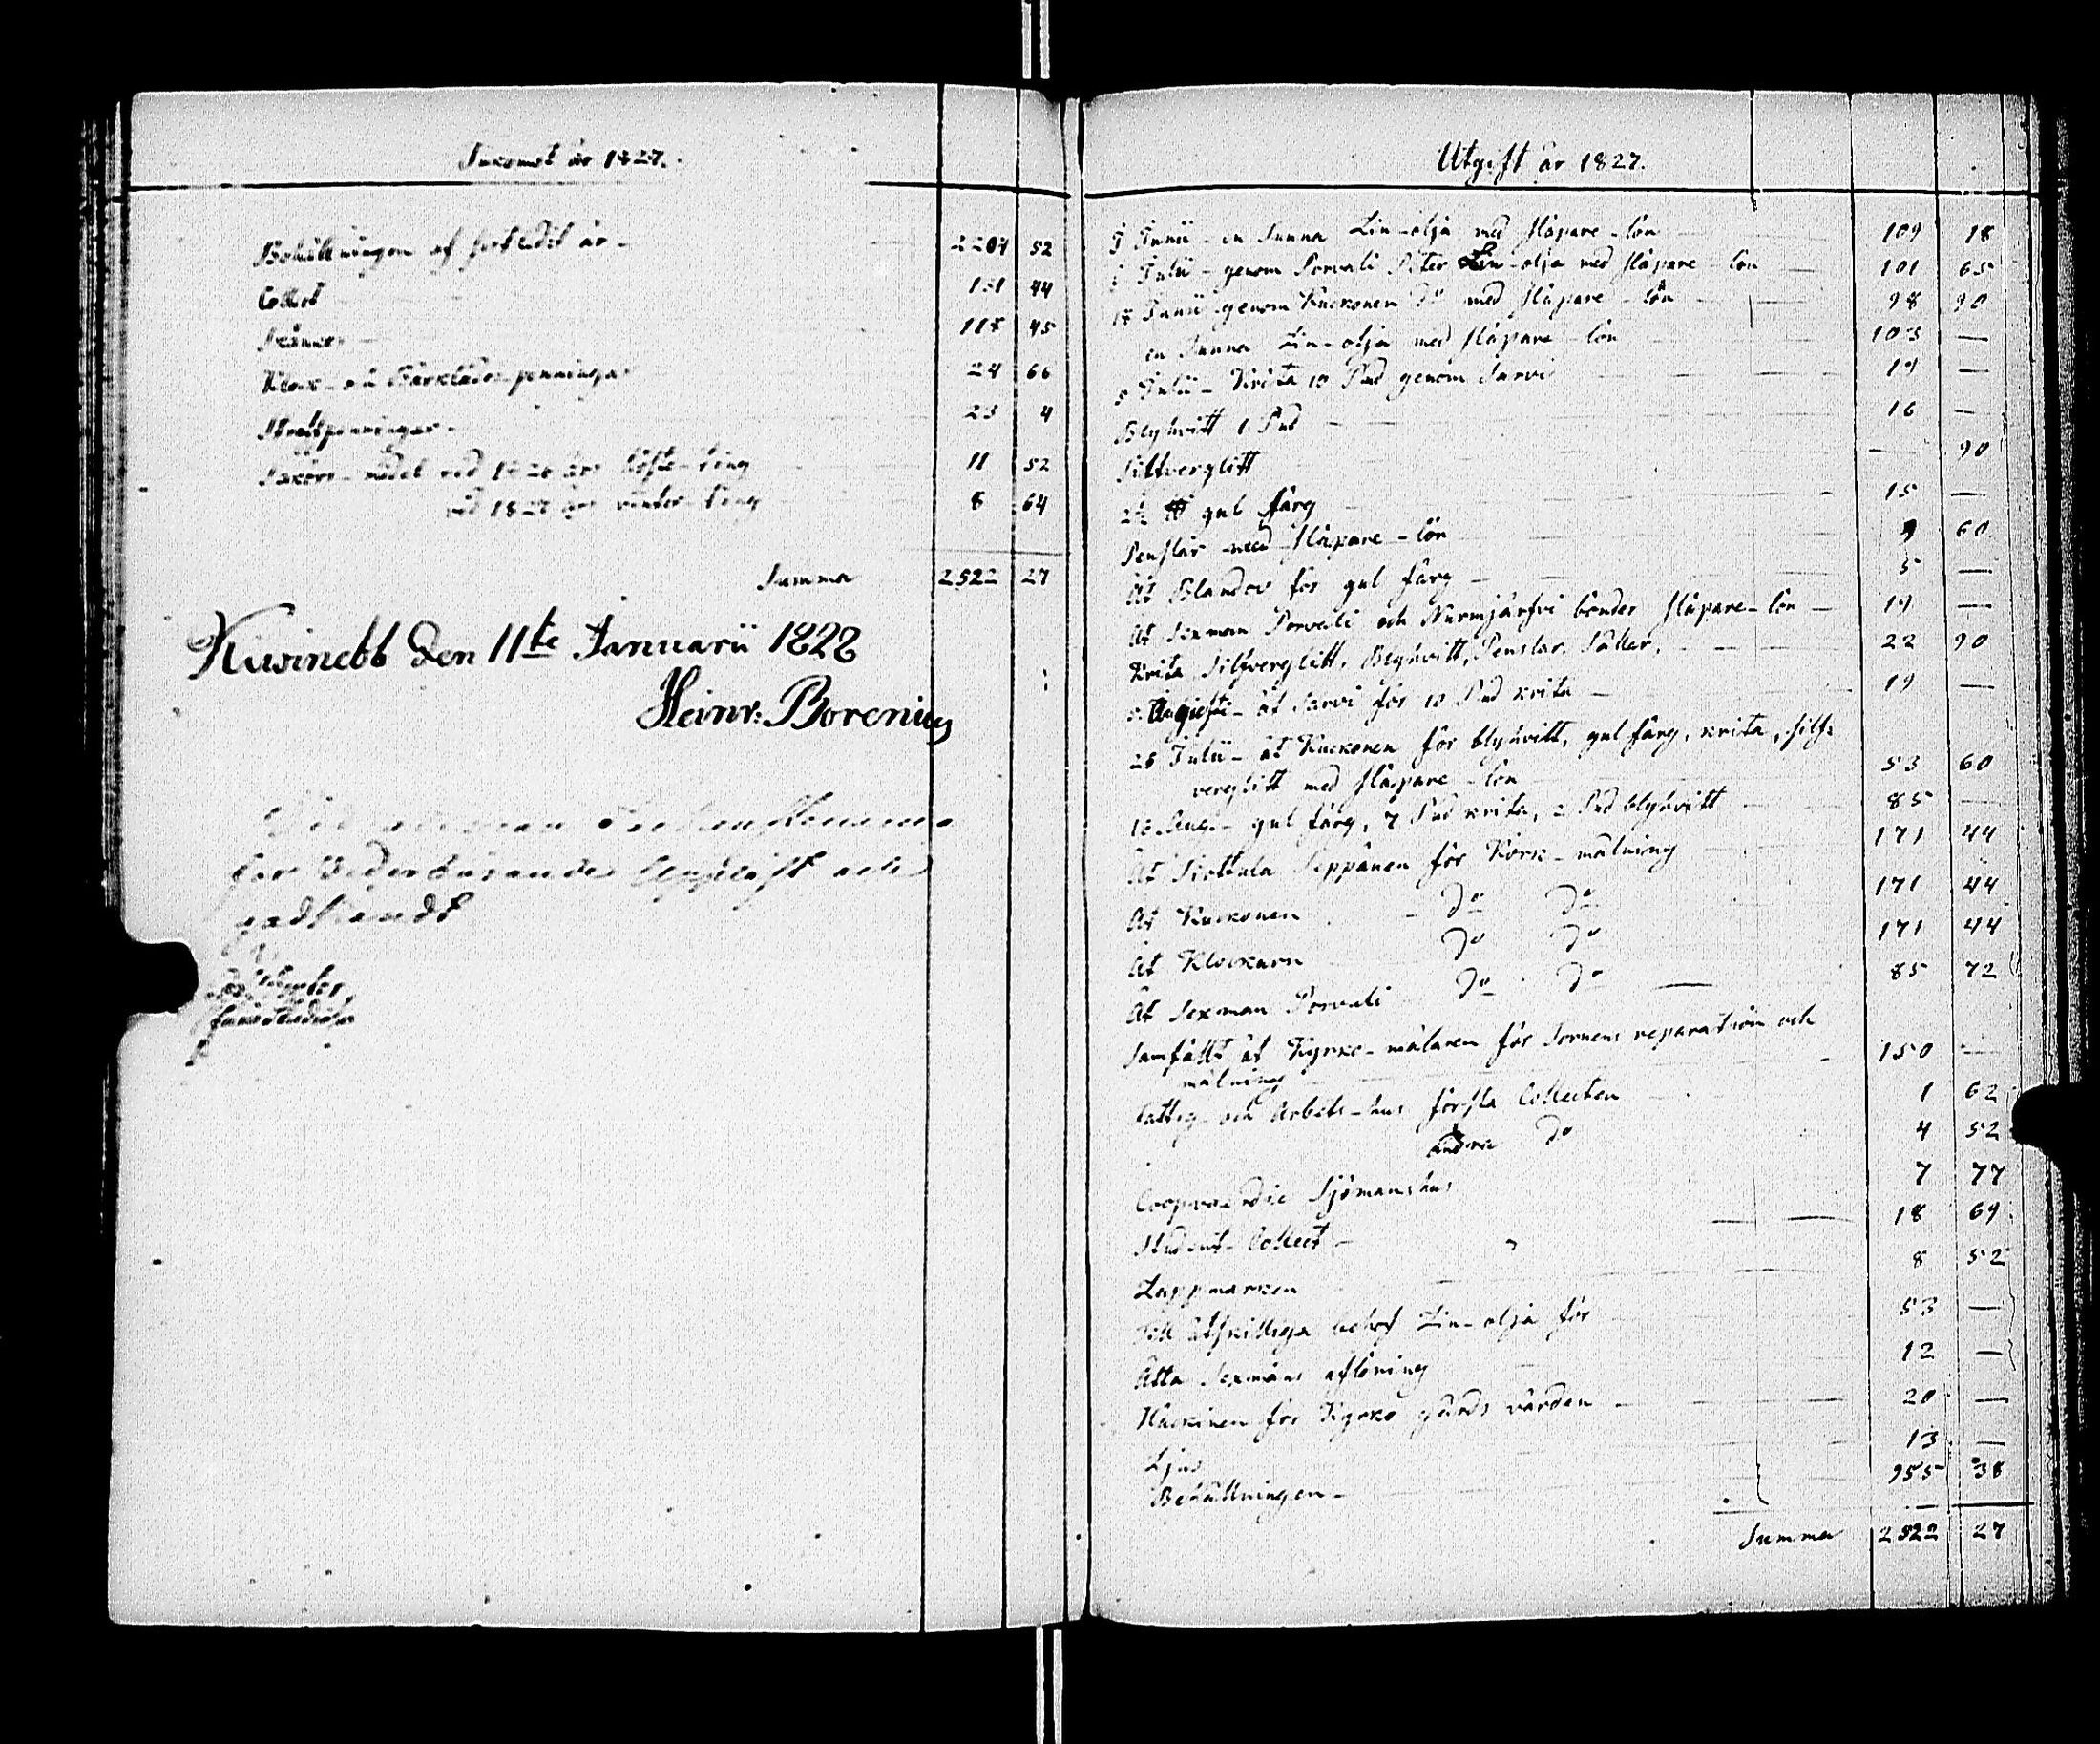 Inkomst år 1827.
Behållningen af sistledit år 2204 52
Collect 131 44
118 45
Klock- och Bårklädes penningar 24 66
Stolpenningar 23 4
Sakörs-medel vid 1826 års höste-ting 11 52
vid 1827 års vinter-ting 8 64
Summa 2522 27
Kiwinebb Den 11te Januarii 1828
Heinr: Borenius
för Vederbörande Uppläst och
godkändt
Utgift år 1827.
Junii - en Tunna Lin-olja med släpare-lön 109 18
Julii - genom Porvali Peter Lin-olja med släpare-lön 101 65
18 Junii genom Kuckonen do med släpare-lön 98 90
en Tunna Lin-olja med släpare-lön 103 —
5 Julii - Krita 10 Pud genom Sarvi 19 —
Blyhvitt 1 Pud 16 —
Silfverglitt — 90
2½ ℔ gul färg 15 —
Penslar med släpare-lön 9 60
Åt Blandov för gul färg 5 —
Åt Sexman Porvali och Nurmijärfvi bönder släpare-lön 19 —
Krita, Silfverglitt, Blyhvitt, Penslar, Sållar, 22 90
5 Augusti - åt Sarvi för 10 Pud krita 19 —
28 Julii - åt Kuckonen för blyhvitt, gul färg, krita, silf:
verglitt med släpare-lön 53 60
16 Aug: - gul färg, 7 Pud krita, 2 Pud blyhvitt 85 —
Åt Sirttula Seppänen för Körk-målning 171 44
Åt Kuckonen do do 171 44
Åt Klockarn do do 171 44
Åt Sexman Porvali do do 85 72
Samfält åt Kyrko-målaren för Tornens reparation och
målning 150 —
Fattig- och Arbets-hus första Collecten 1 62
andra do 4 52
Coopvaerdie Sjömanshus 7 77
Student-Collect 18 69
Lappmarken 8 52
Till åtskilliga behof Lin-olja för 53 —
Åtta Sexmäns aflöning 12 —
Huckinen för Kyrko gårds vården 20 —
Ljus 13 —
Behållningen 955 38
Summa 2522 27